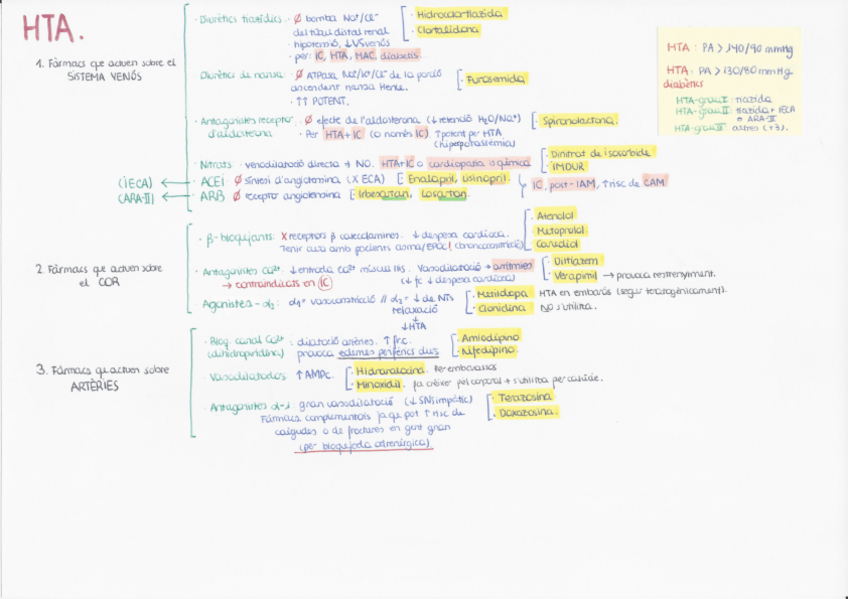 HTA.
HTA : PA > 140/90 mmHg
HTA : PA > 130/80 mmHg.
diabètics
HTA-grau I : tiazida
HTA-grau II : tiazida + IECA
o ARA-II
HTA-grau III : altres (+3).
1. Fàrmacs que actuen sobre el
SISTEMA VENÓS
· Diürètics tiazídics · Ø bomba Na+/Cl-
del túbul distal renal
· hipotensió, ↓VS venós
· per: IC, HTA, MAC, diabetis..
· Hidroclorotiazida
· Clortalidona
· Diürètics de nansa · Ø ATPasa Na+/K+/Cl- de la porció
ascendent nansa Henle.
· ↑↑ POTENT.
· Furosemida
· Antagonistes receptor
d'aldosterona
· Ø efecte de l'aldosterona (↓ retenció H2O/Na+)
· Per HTA+IC (o només IC) ↑potent per HTA
(hiperpotassèmia)
· Spironolactona.
· Nitrats · venodilatació directa → NO. HTA+IC o cardiopatia isquèmica
· Dinitrat de isosorbide
· IMDUR
(IECA) ← · ACEi Ø síntesi d'angiotensina (X ECA) [Enalapril, Lisinopril.
(ARA-II) ← · ARB Ø receptor angiotensina [Irbesartan, Losartan.
IC, post-IAM, ↑risc de CAM
2. Fàrmacs que actuen sobre
el COR
· β-bloquejants: X receptors β catecolamines. ↓ despesa cardíaca.
Tenir cura amb pacients asma/EPOC! (broncoconstricció)
· Atenolol
· Metoprolol
· Carvedilol
· Antagonistes Ca2+. ↓ entrada Ca2+ múscul llis. Vasodilatació → arrítmies
→ contraindicats en IC
(↓ fc ↓ despesa cardíaca)
· Diltiazem
· Verapimil → provoca restrenyiment.
· Agonistes-α2: α1= vasoconstricció // α2= ↓ de NTs
relaxació
↓HTA
· Metildopa HTA en embaràs (segur teratogènicament).
· Clonidina No s'utilitza.
3. Fàrmacs que actuen sobre
ARTÈRIES
· Bloq. canal Ca2+
(dihidropiridina)
: dilatació artèries. ↑ frc.
provoca edemes perifèrics duis
· Amlodipino
· Nifedipino.
· Vasodilatadors ↑AMPc.
· Hidralazina. Per embarassos
· Minoxidil. fa créixer pèl corporal → s'utilitza per calvície.
· Antagonistes α-1 gran vasodilatació (↓ SN simpàtic)
Fàrmacs complementaris ja que pot ↑ risc de
caigudes o de fractures en gent gran
(per bloquejada adrenèrgica)
· Terazosina
· Doxazosina.